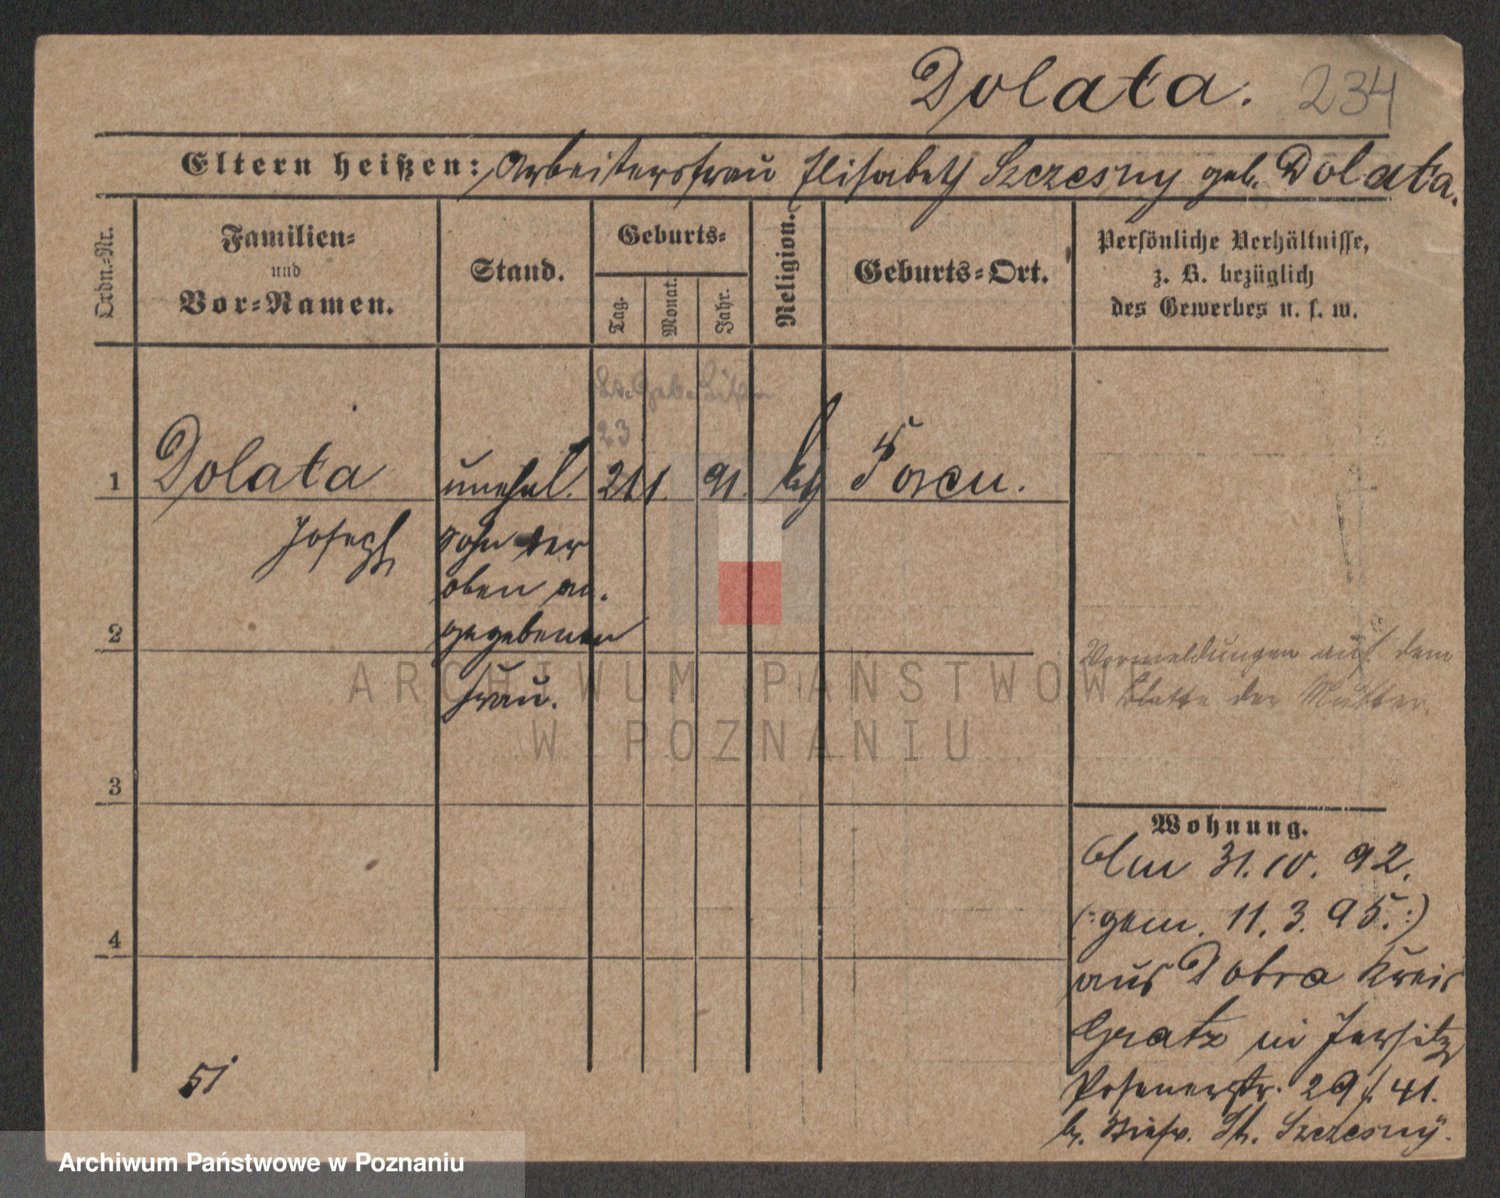 Dolata. 234
Eltern heißen: Arbeitersfrau Elisabeth Szczesny geb. Dolata.
Ordn.-Nr.
Familien-
und
Vor-Namen.
Stand.
Geburts-
Tag.
Monat.
Jahr.
Religion.
Geburts-Ort.
Persönliche Verhältnisse,
z. B. bezüglich
des Gewerbes u. s. w.
23
1 Dolata unehel. 21 1. 91. kth
Joseph Sohn der
oben an-
2 gegebenen
Frau.
Vormeldungen auf dem
Blatte der Mutter.
ARCHIWUM PAŃSTWOWE
W POZNANIU
3
Wohnung.
Am 31. 10. 92.
(: gem. 11. 3. 95. :)
4
aus Dobra Kreis
Gratz in Jersitz
Posenerstr. 29/41.
b. Stiefv. St. Szczesny.
51
Archiwum Państwowe w Poznaniu